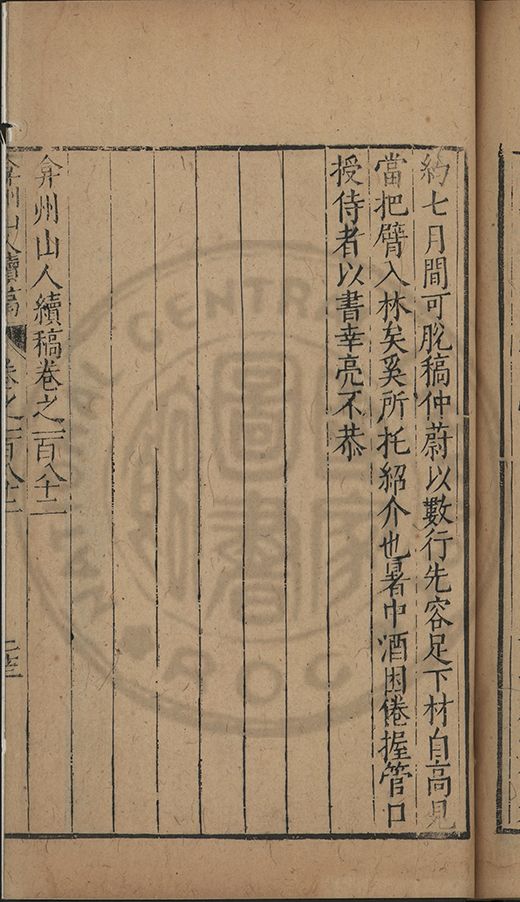 約七月間可脫稿仲蔚以數行先容足下材自高見
當把臂入林矣奚所托紹介也暑中酒困倦握管口
授侍者以書幸亮不恭
弇州山人續稿卷之一百八十二
弇州山人續稿 卷之一百八十二